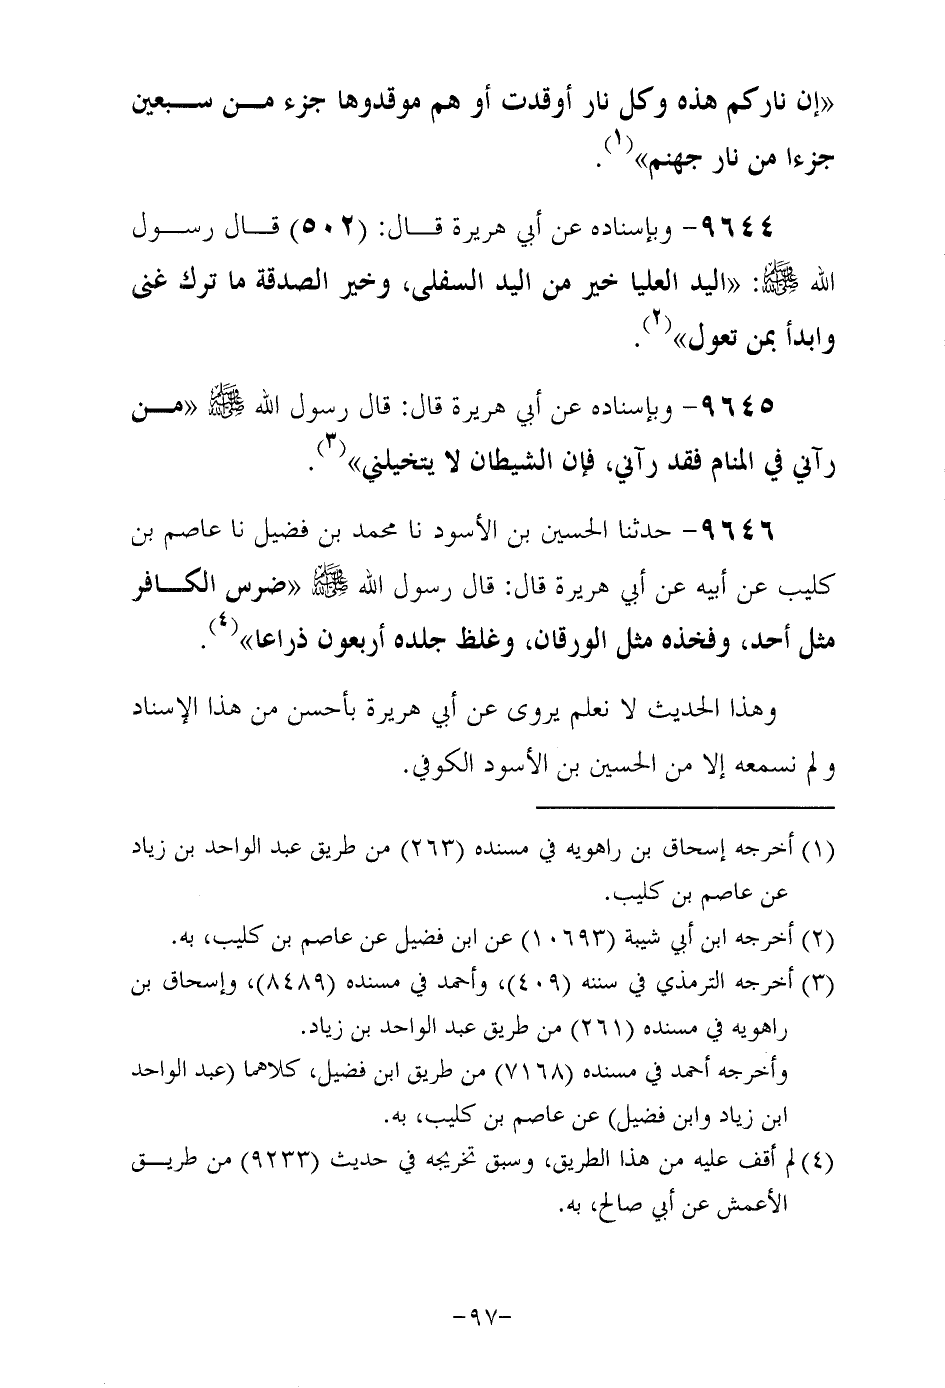 «إن ناركم هذه وكل نار أوقدت أو هم موقدوها جزء مـــن ســـبعين
جزءا من نار جهنم»(١).
٩٦٤٤- وبإسناده عن أبي هريرة قـــال: (٥٠٢) قـــال رســـول
الله ﷺ: «اليد العليا خير من اليد السفلى، وخير الصدقة ما ترك غنى
وابدأ بمن تعول»(٢).
٩٦٤٥- وبإسناده عن أبي هريرة قال: قال رسول الله ﷺ «مـــن
رآني في المنام فقد رآني، فإن الشيطان لا يتخيلني»(٣).
٩٦٤٦- حدثنا الحسين بن الأسود نا محمد بن فضيل نا عاصم بن
كليب عن أبيه عن أبي هريرة قال: قال رسول الله ﷺ «ضرس الكـــافر
مثل أحد، وفخذه مثل الورقان، وغلظ جلده أربعون ذراعا»(٤).
وهذا الحديث لا نعلم يروى عن أبي هريرة بأحسن من هذا الإسناد
ولم نسمعه إلا من الحسين بن الأسود الكوفي.
(١) أخرجه إسحاق بن راهويه في مسنده (٢٦٣) من طريق عبد الواحد بن زياد
عن عاصم بن كليب.
(٢) أخرجه ابن أبي شيبة (١٠٦٩٣) عن ابن فضيل عن عاصم بن كليب، به.
(٣) أخرجه الترمذي في سننه (٤٠٩)، وأحمد في مسنده (٨٤٨٩)، وإسحاق بن
راهويه في مسنده (٢٦١) من طريق عبد الواحد بن زياد.
وأخرجه أحمد في مسنده (٧١٦٨) من طريق ابن فضيل، كلاهما (عبد الواحد
ابن زياد وابن فضيل) عن عاصم بن كليب، به.
(٤) لم أقف عليه من هذا الطريق، وسبق تخريجه في حديث (٩٢٣٣) من طريـــق
الأعمش عن أبي صالح، به.
-٩٧-